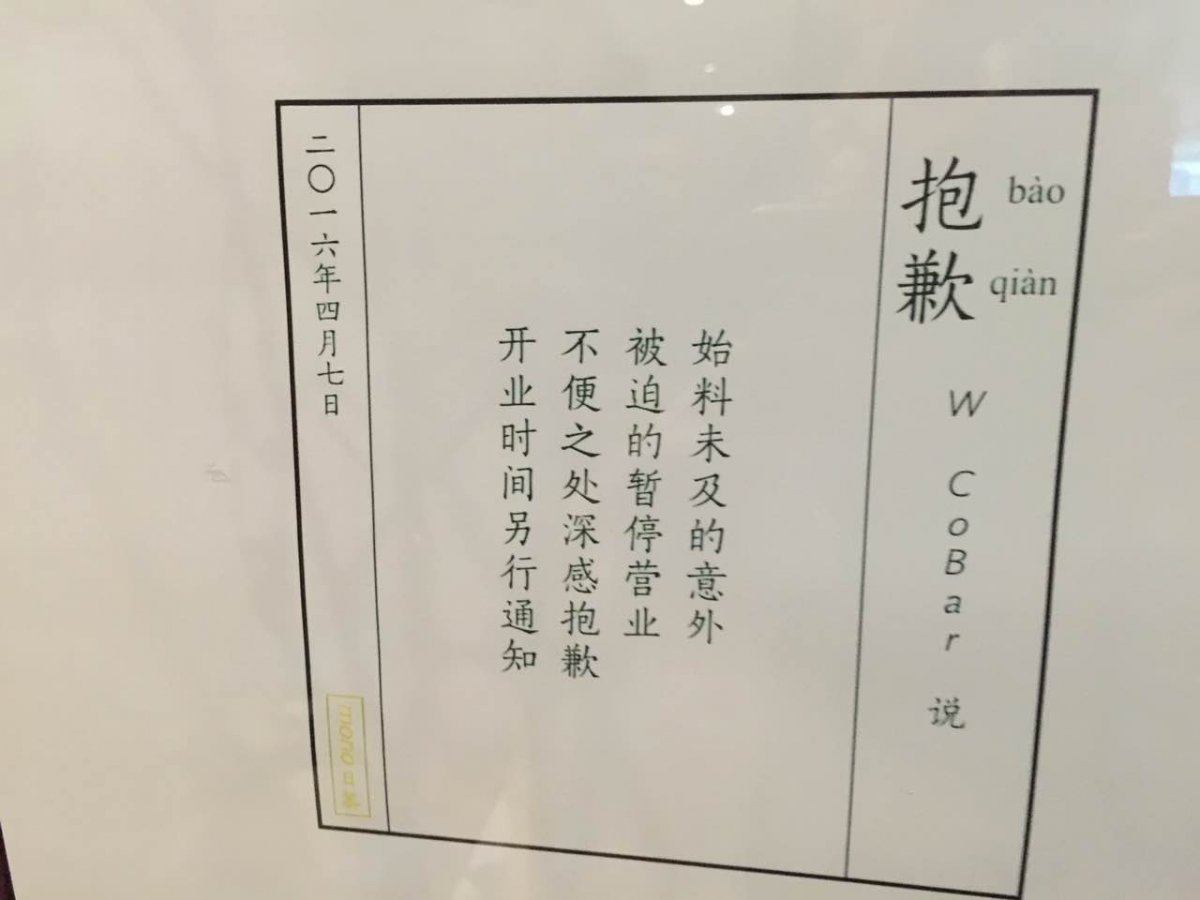 抱歉
bào
qiàn
W CoBar 说
始料未及的意外
被迫的暂停营业
不便之处深感抱歉
开业时间另行通知
二〇一六年四月七日
mono